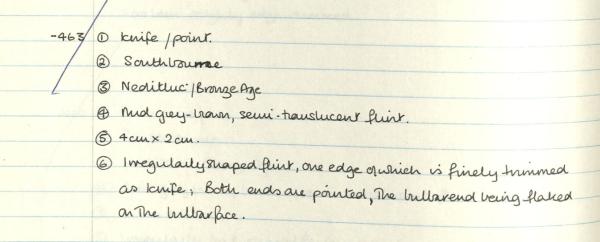 -463 ① Knife/point.
② Southbourne
③ Neolithic/Bronze Age
④ Mid grey-brown, semi-translucent flint.
⑤ 4cm x 2cm.
⑥ Irregularly shaped flint, one edge of which is finely trimmed
as knife; Both ends are pointed, The bulbar end being flaked
on The bulbar face.